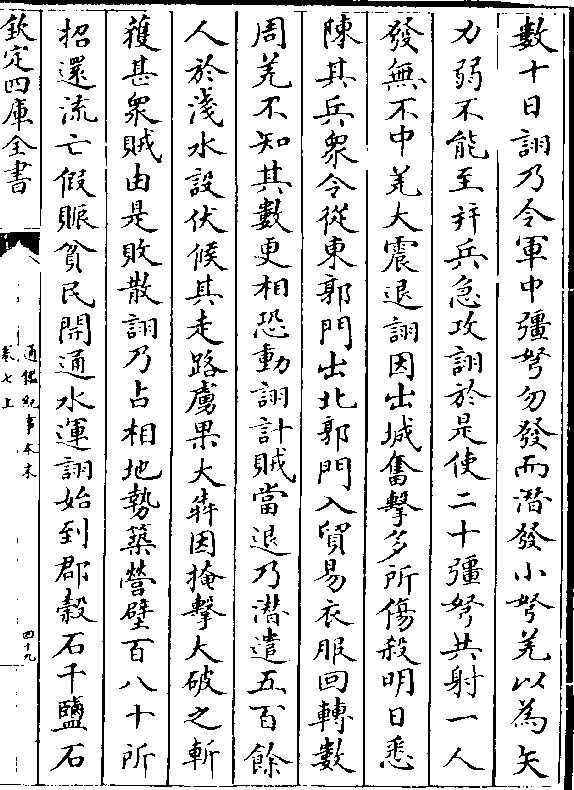 數十日詡乃令軍中彊弩勿發而潛發小弩羌以為矢
力弱不能至并兵急攻詡於是使二十彊弩共射一人
發無不中羌大震退詡因出城奮擊多所傷殺明日悉
陳其兵衆令從東郭門出北郭門入貿易衣服回轉數
周羌不知其數更相恐動詡計賊當退乃潛遣五百餘
人於淺水設伏候其走路虜果大奔因掩擊大破之斬
獲甚衆賊由是敗散詡乃占相地勢築營壁百八十所
招還流亡假賑貧民開通水運詡始到郡榖石千鹽石
欽定四庫全書
通鑑紀事本末
卷七上
四十九